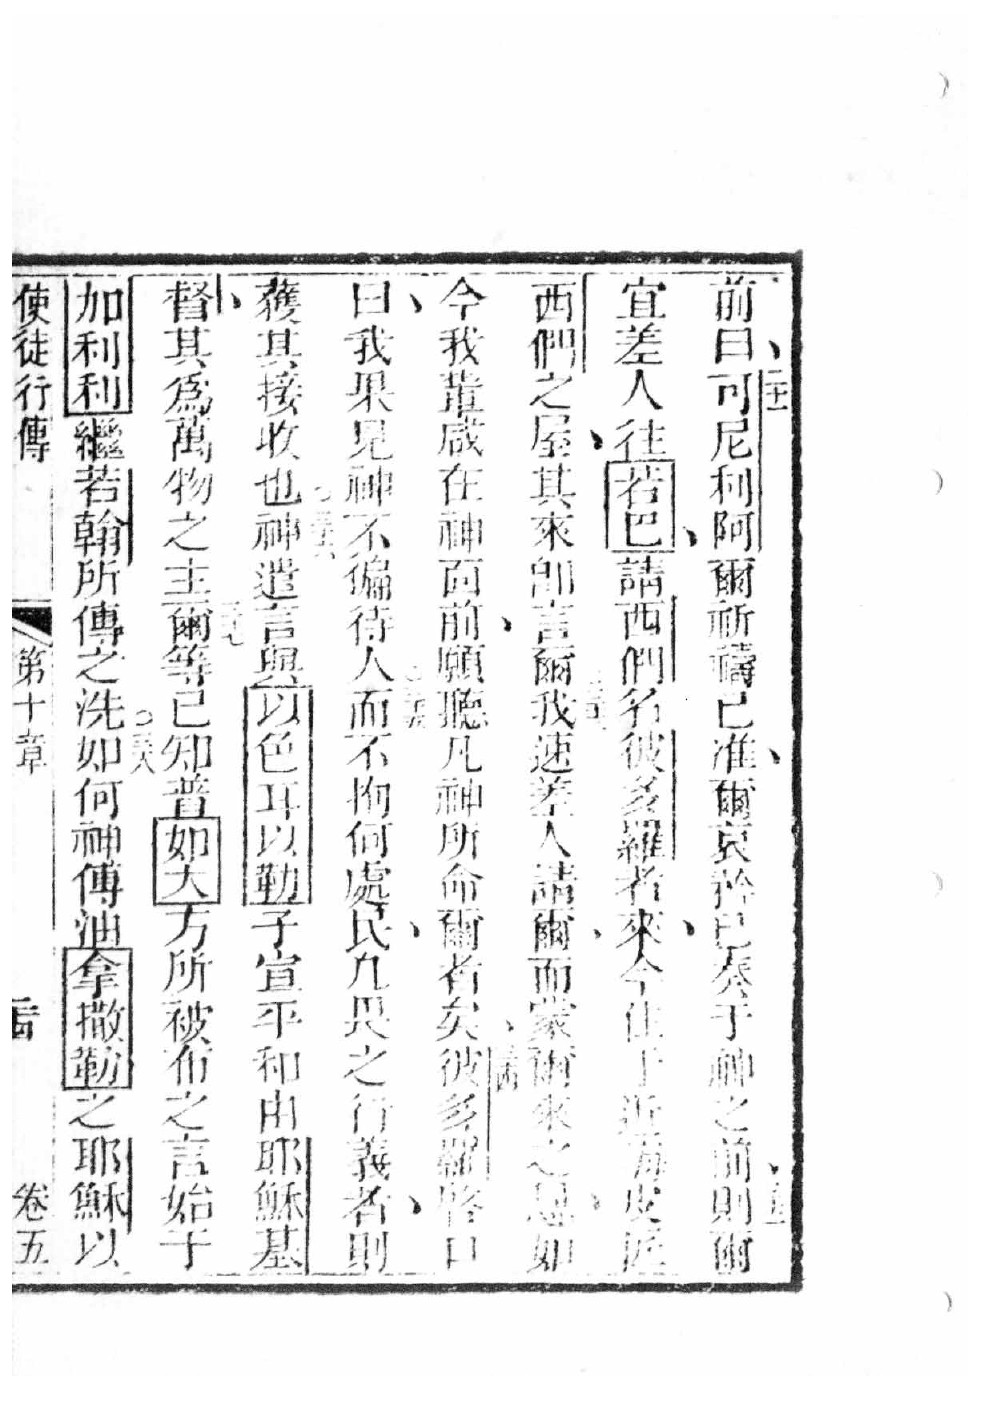 前曰可尼利阿爾祈禱已准爾哀矜已奏于神之前則爾
宜差人往若巴請西們名彼多羅者來今住于近海皮匠
西們之屋其來卽言爾我速差人請爾而蒙爾來之恩如
今我輩咸在神面前願聽凡神所命爾者矣彼多羅啓口
曰我果見神不偏待人而不拘何處民凡畏之行義者則
獲其接收也神遣言與以色耳以勒子宣平和由耶穌基
督其為萬物之主爾等已知普如大方所被布之言始于
加利利繼若翰所傳之洗如何神傅油拿撒勒之耶穌以
使徒行傳 第十章 卷五